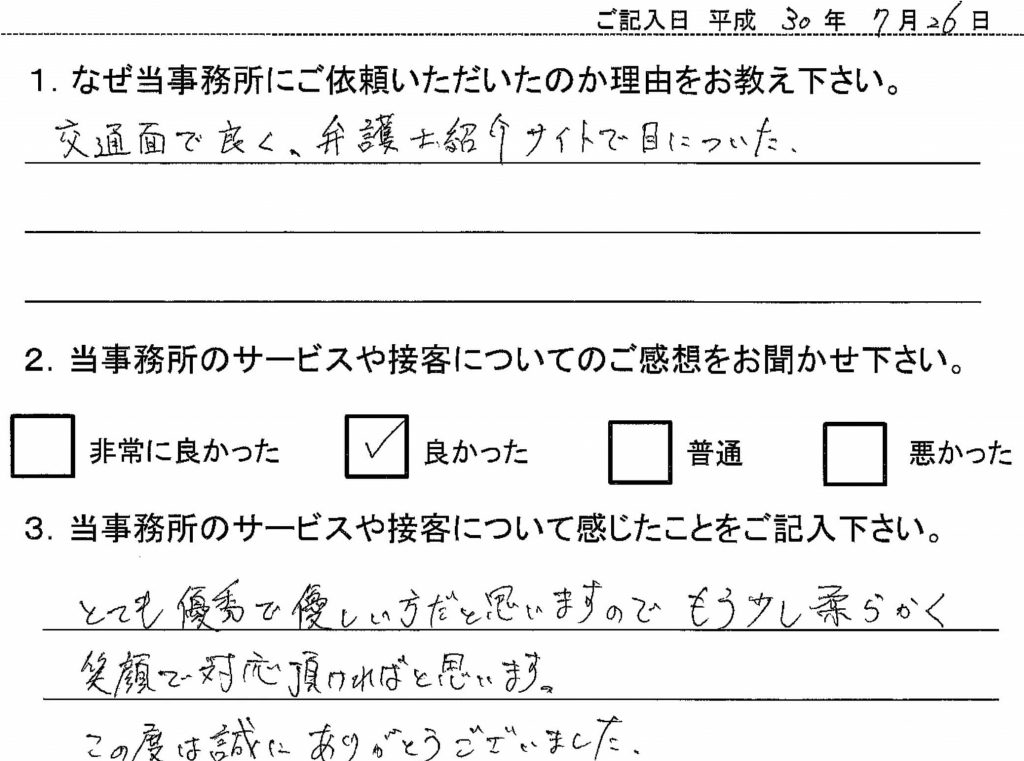 ご記入日 平成 30 年 7 月 26 日
1. なぜ当事務所にご依頼いただいたのか理由をお教え下さい。
交通面で良く、弁護士紹介サイトで目についた.
2. 当事務所のサービスや接客についてのご感想をお聞かせ下さい。
非常に良かった ✓ 良かった 普通 悪かった
3. 当事務所のサービスや接客について感じたことをご記入下さい。
とても優秀で優しい方だと思いますのでもう少し柔らかく
笑顔で対応頂ければと思います。
この度は誠にありがとうございました.